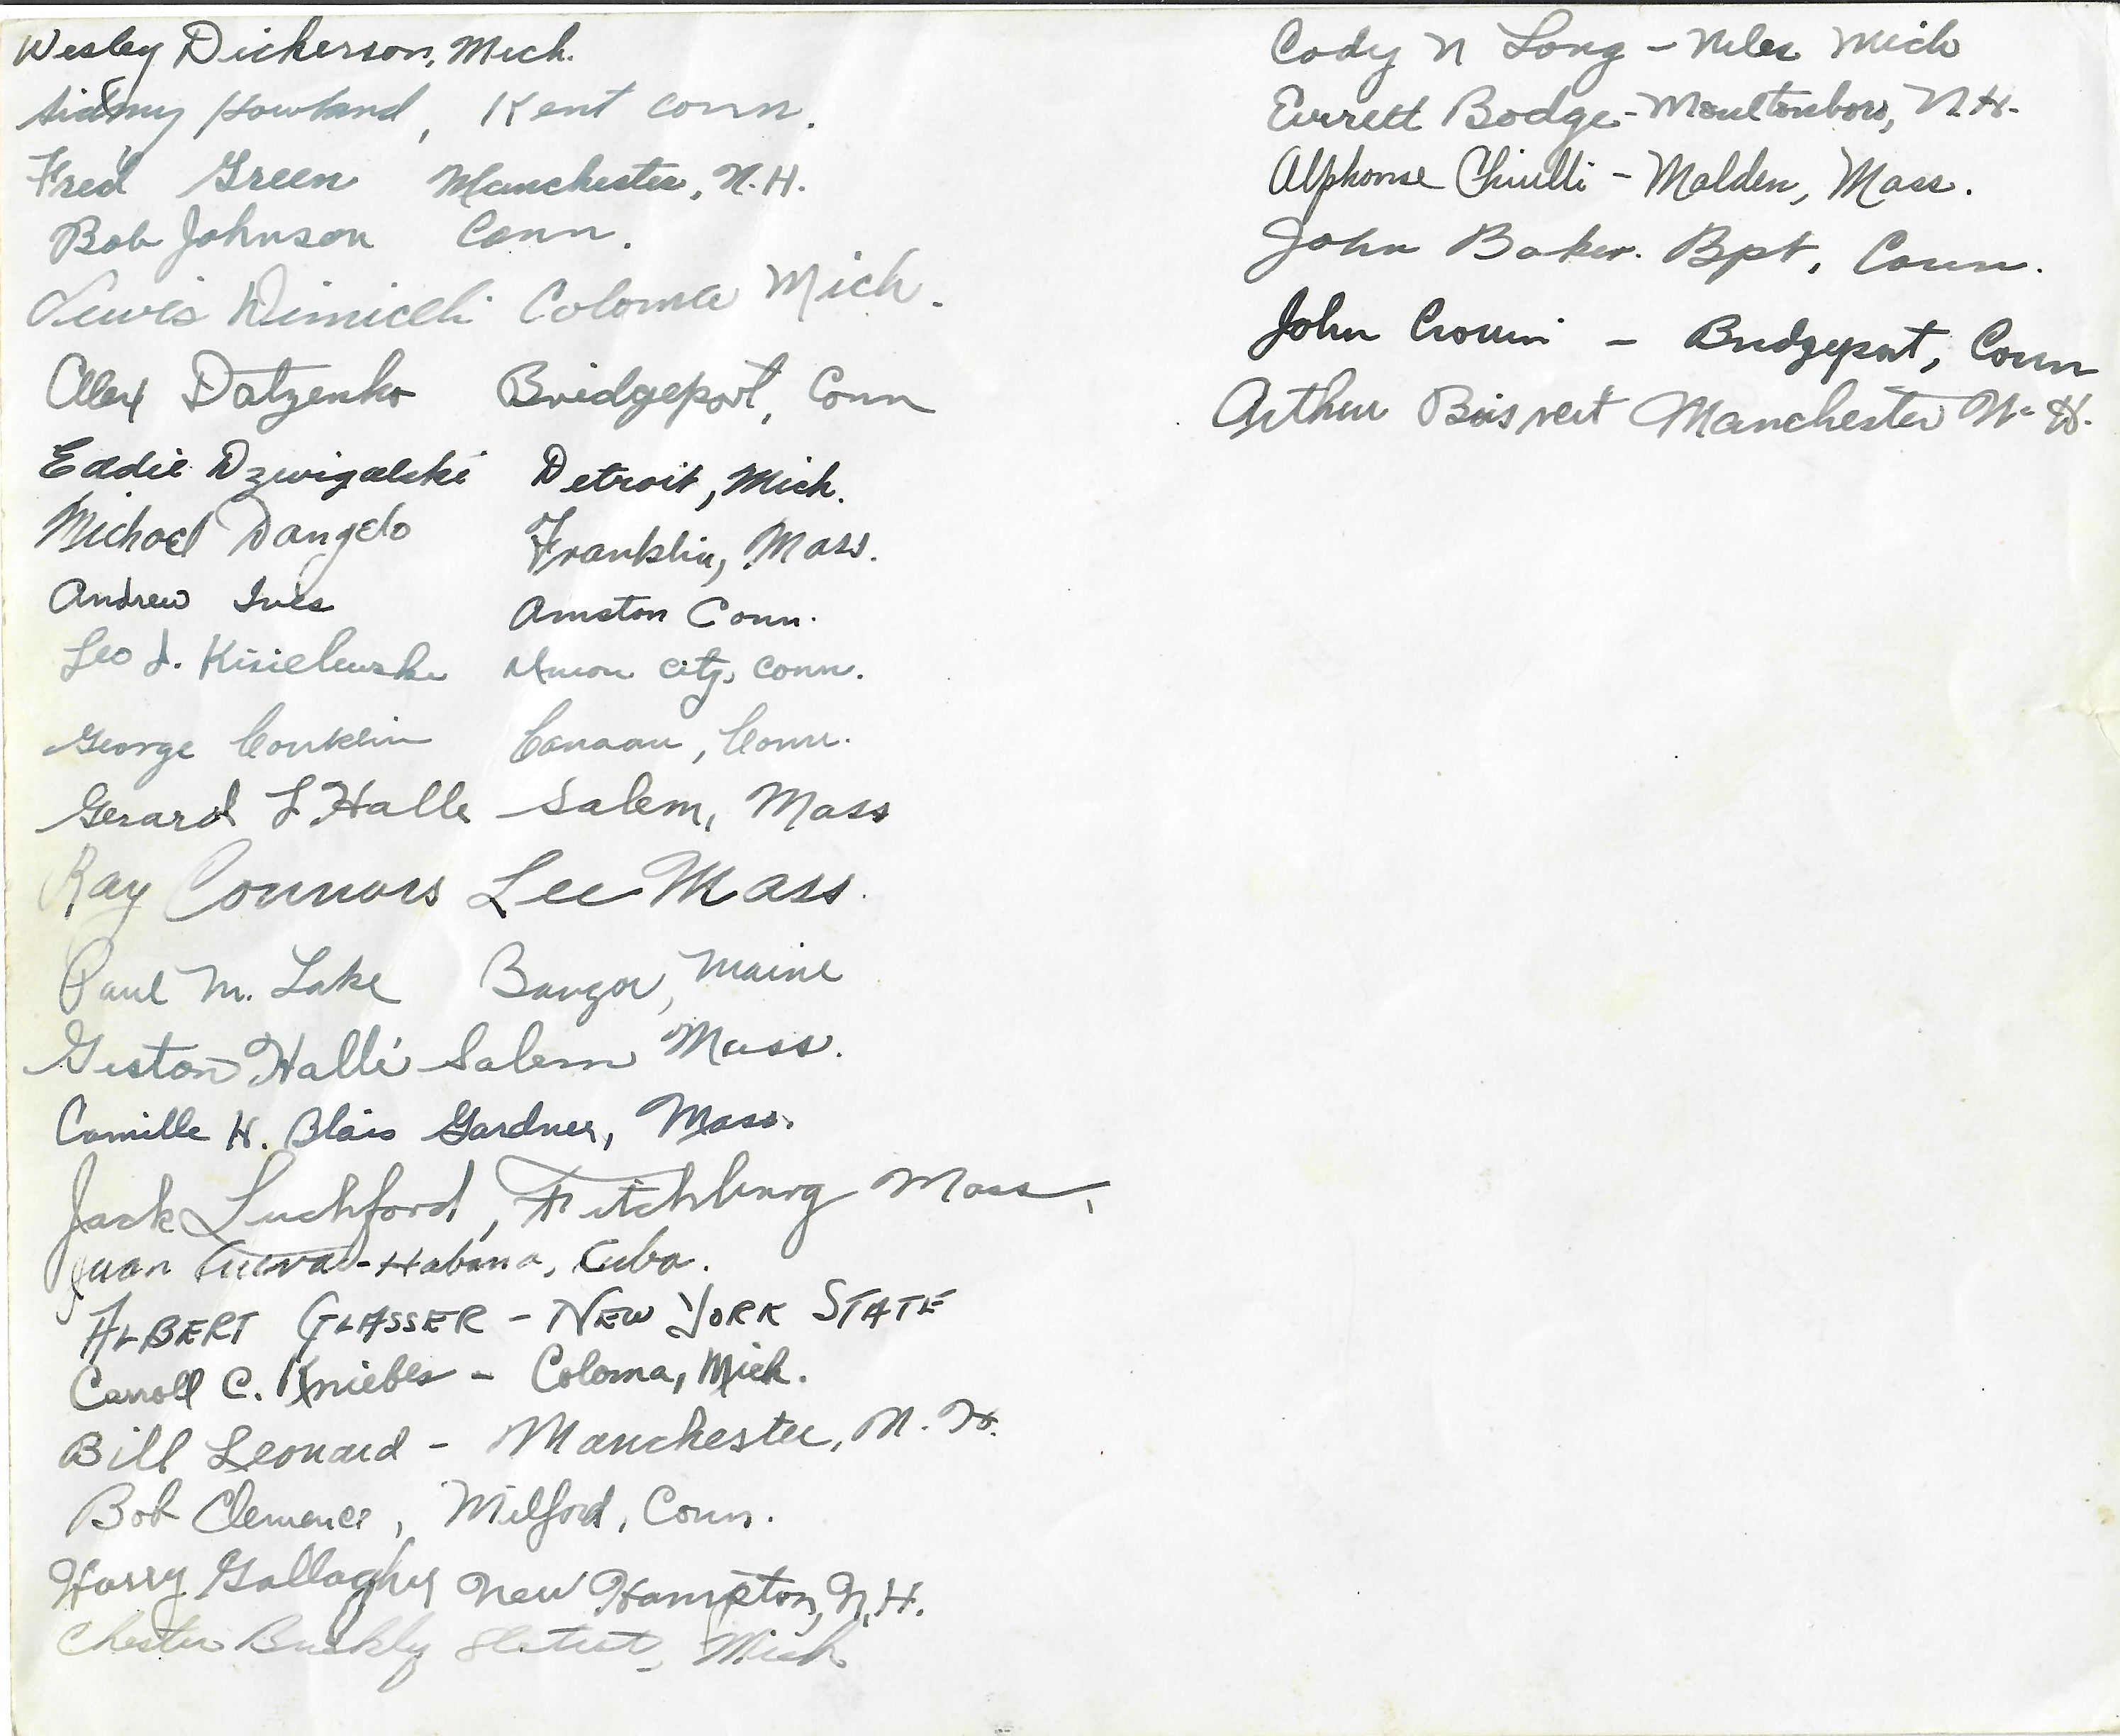 Wesley Dickerson, Mich.
Sidney Howland, Kent Conn.
Fred Green Manchester, N.H.
Bob Johnson Conn.
Lewis Dimiceli Coloma Mich.
Alex Datzenko Bridgeport, Conn
Eddie Dzwigalski Detroit, Mich.
Michael Dangelo Franklin, Mass.
Andrew Ives Amston Conn.
Leo J. Kisielewski Union City, Conn.
George Conklin Canaan, Conn.
Gerard L Halle Salem, Mass
Ray Connors Lee Mass.
Paul M. Lake Bangor, Maine
Gaston Hallé Salem Mass.
Camille H. Blais Gardner, Mass.
Jack Luchford, Fitchburg Mass.
Juan Cueva - Habana, Cuba.
ALBERT GLASSER - NEW YORK STATE
Carroll C. Kniebes - Coloma, Mich.
Bill Leonard - Manchester, N.H.
Bob Clemence, Milford, Conn.
Harry Gallagher New Hampton, N.H.
Chester Detroit, Mich
Cody N Long - Niles Mich
Everett Bodge - Moultonboro, N.H.
Alphonse Chiulli - Malden, Mass.
John Baker. Bpt, Conn.
John Cronin - Bridgeport, Conn
Arthur Boisvert Manchester N-H.